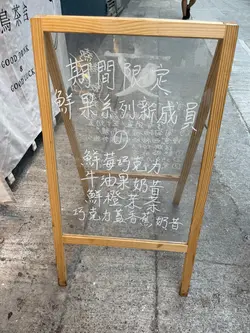 期間限定
鮮果系列新成員
鮮莓巧克力
牛油果奶昔
鮮橙茉茶
巧克力蓋香蕉奶昔
鳥茶言
GOOD DESK
& GOOD LUCK